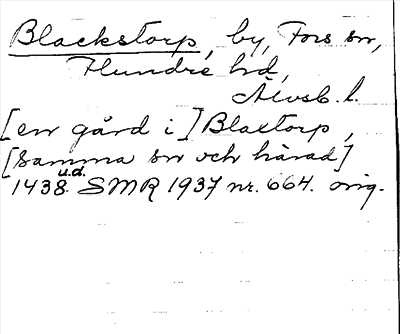 Blackstorp, by, Fors sn,
Flundre hd,
Älvsb. l.
[en gård i] Blactorp,
[samma sn och härad]
1438 u.d. SMR 1937 nr. 664. orig.